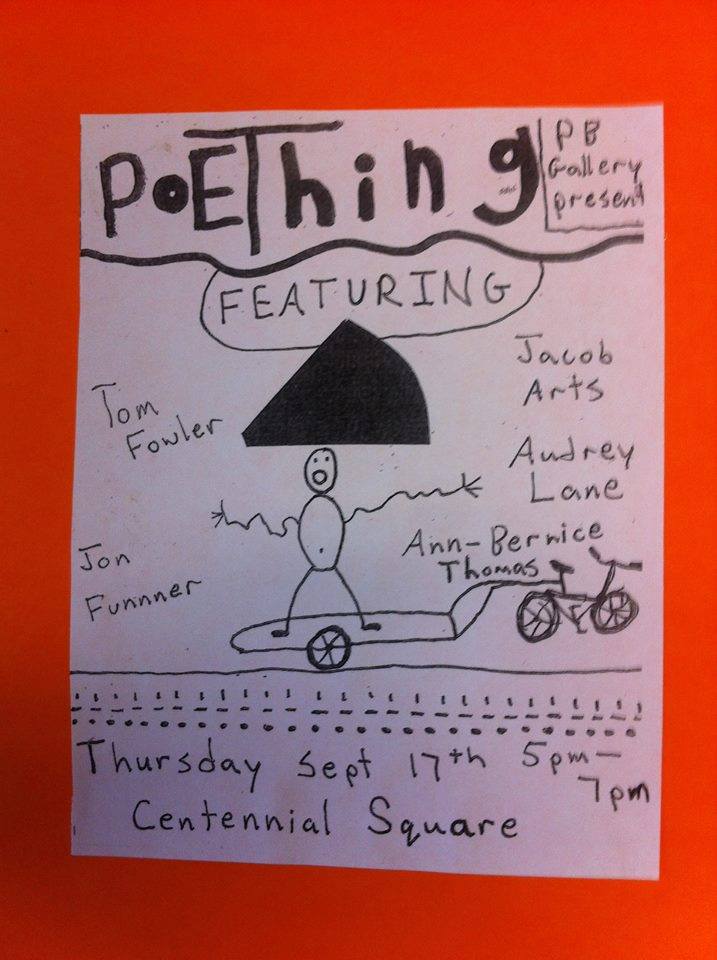 PoEThing
PB
Gallery
present
FEATURING
Tom
Fowler
Jacob
Arts
Audrey
Lane
Jon
Funnner
Ann-Bernice
Thomas
Thursday Sept 17th 5pm-
7pm
Centennial Square